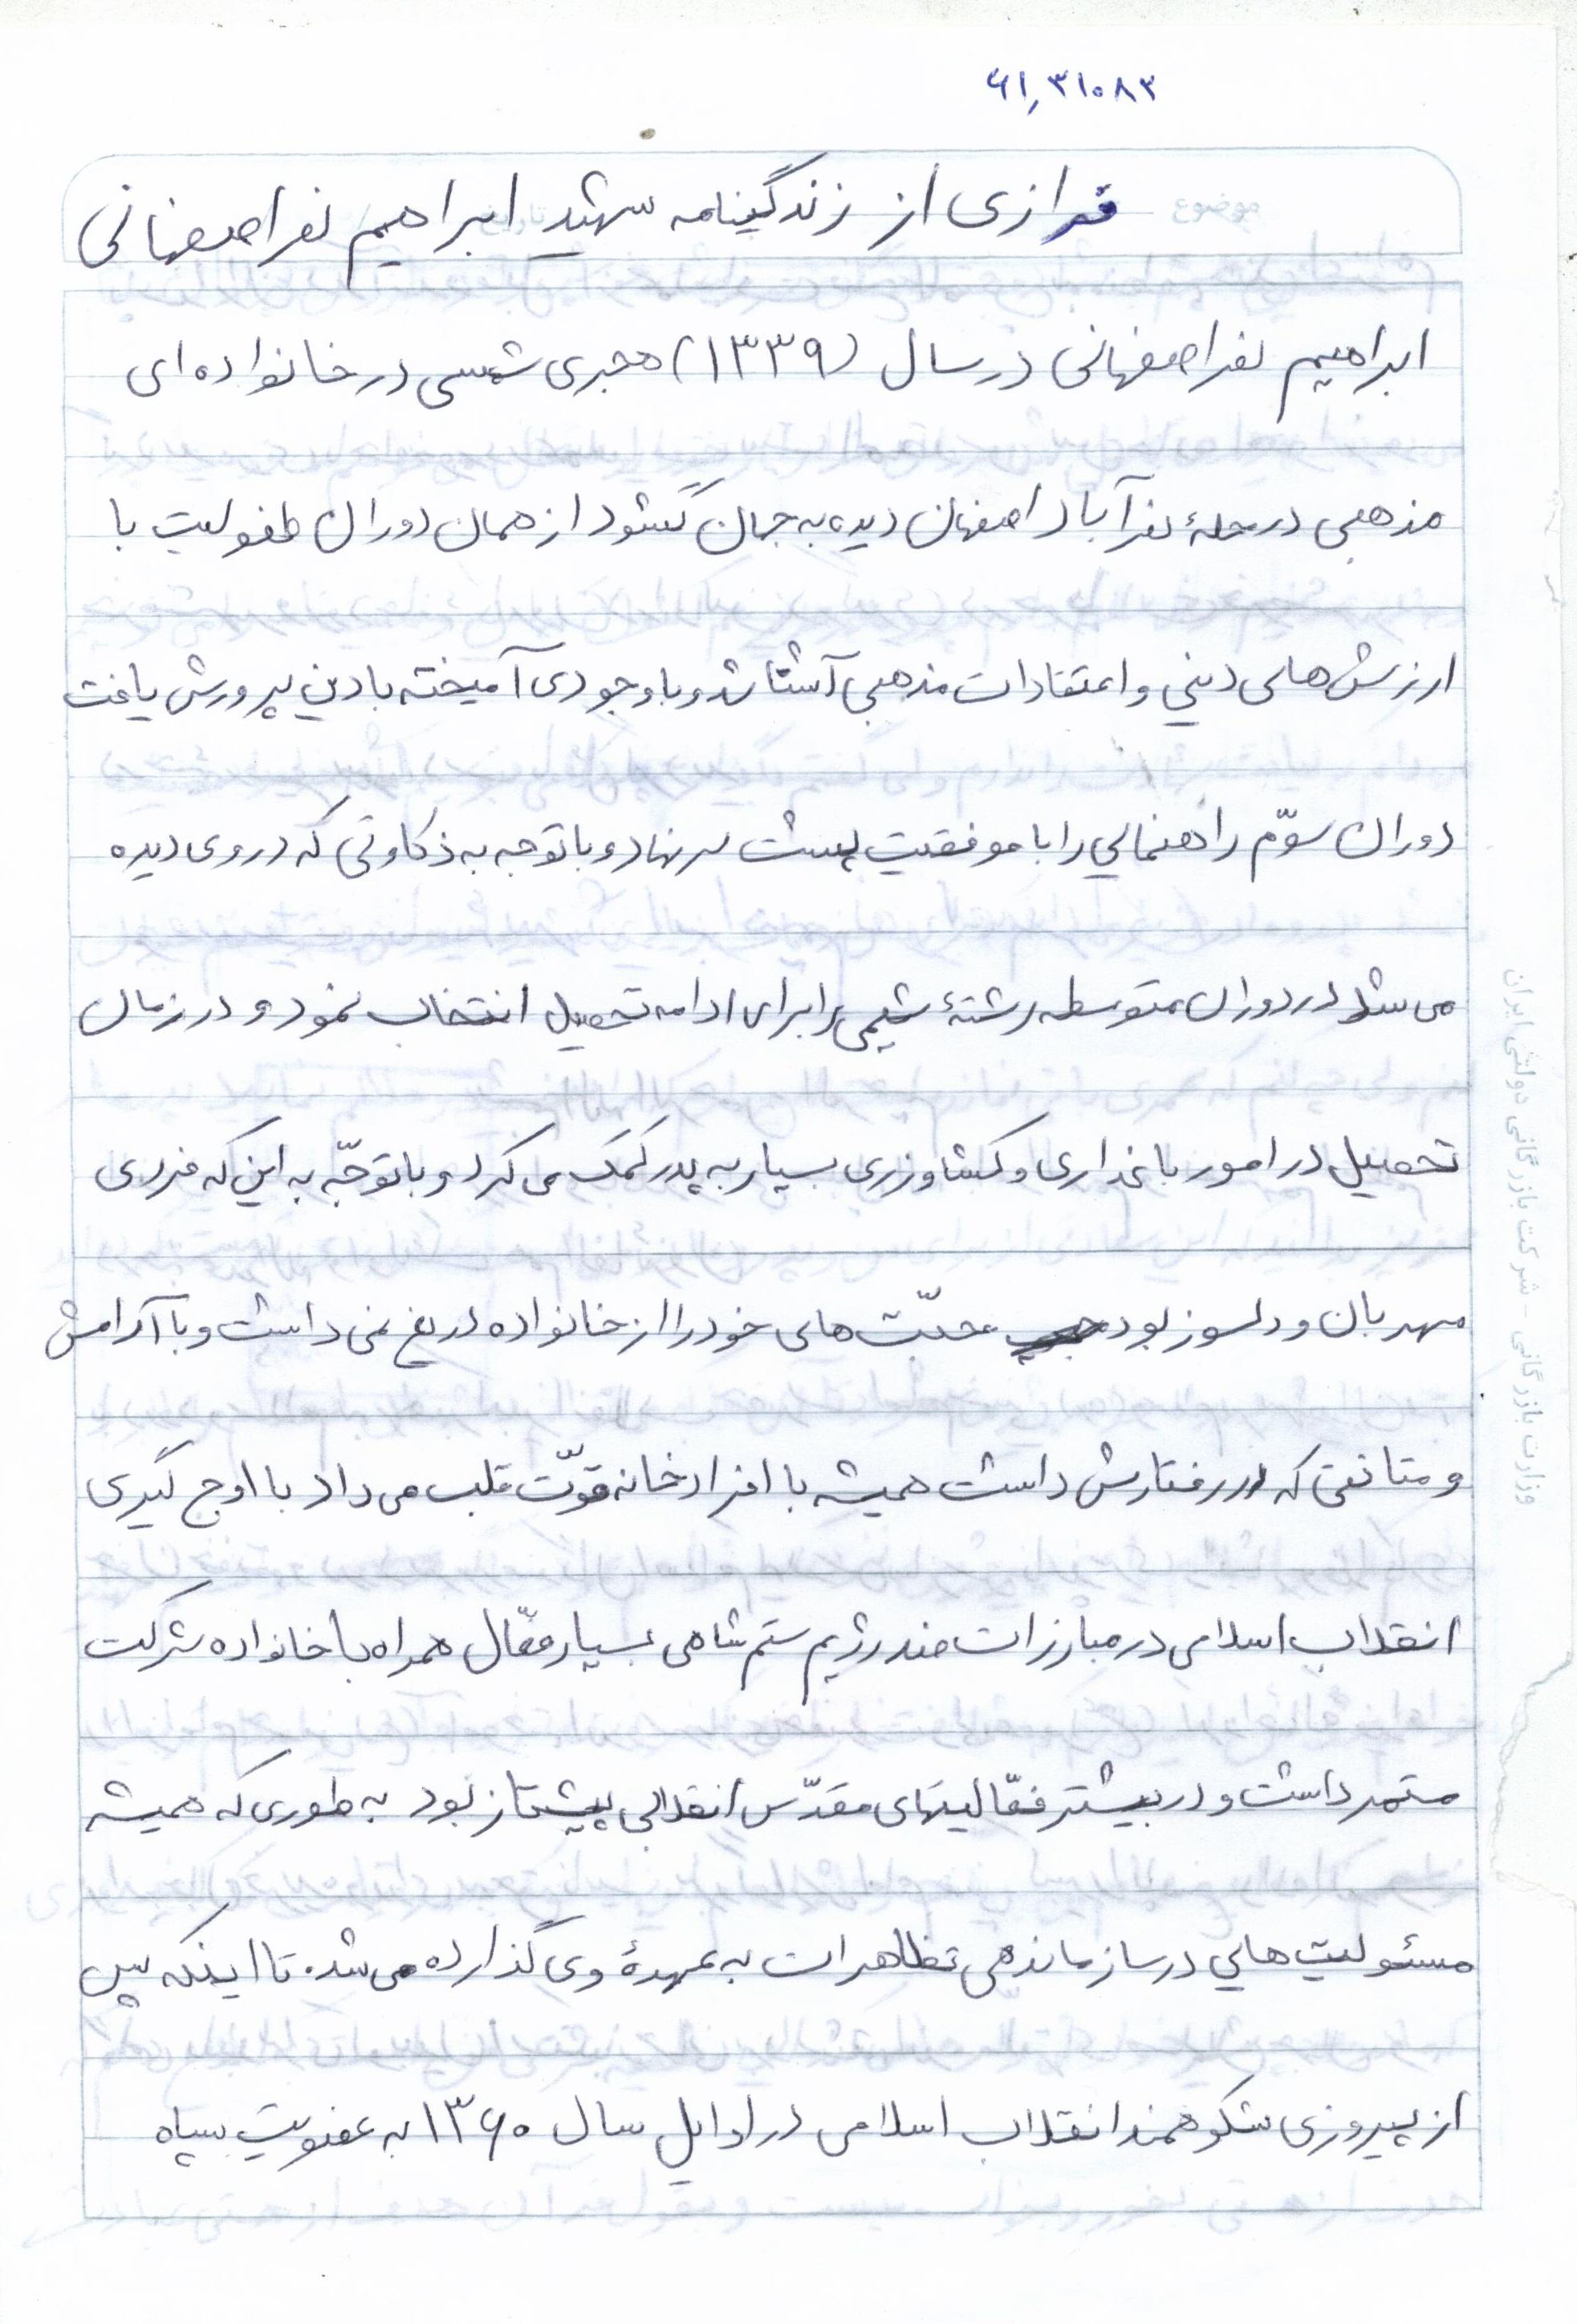 ۶۱٫۳۱۰۸۳
موضوع
فرازی از زندگینامه شهید ابراهیم نفر اصفهانی
ابراهیم نفر اصفهانی در سال (۱۳۳۹) هجری شمسی در خانواده ای
مذهبی در محلهٔ نفرآباد اصفهان دیده به جهان گشود از همان دوران طفولیت با
ارزش های دینی و اعتقادات مذهبی آشنا شد و با وجودی آمیخته با دین پرورش یافت
دوران سوّم راهنمایی را با موفقیت پشت سر نهاد و با توجه به ذکاوتی که در وی دیده
می شد در دوران متوسطه رشتهٔ شیمی را برای ادامه تحصیل انتخاب نمود و در زمان
تحصیل در امور باغداری و کشاورزی بسیار به پدر کمک می کرد و با توجّه به این که فردی
مهربان و دلسوز بود محبّت های خود را از خانواده دریغ نمی داشت و با آرامش
و متانتی که در رفتارش داشت همیشه با افراد خانه قوّت قلب می داد با اوج گیری
انقلاب اسلامی در مبارزات ضد رژیم ستم شاهی بسیار فعّال همراه با خانواده شرکت
مستمر داشت و در بیشتر فعّالیتهای مقدّس انقلابی پیشتاز بود به طوری که همیشه
مسئولیت هایی در سازماندهی تظاهرات به عهدهٔ وی گذارده می شد. تا اینکه پس
از پیروزی شکوهمند انقلاب اسلامی در اوایل سال ۱۳۶۰ به عضویت سپاه
وزارت بازرگانی - شرکت بازرگانی دولتی ایران